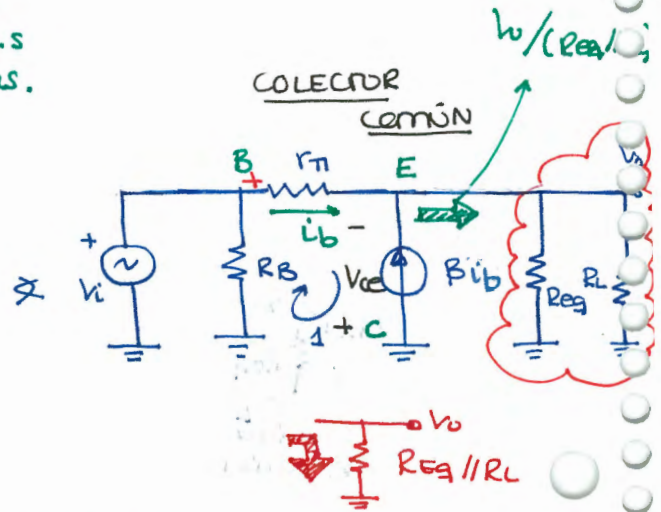 .s
as.
Vo/(Req//
COLECTOR
COMÚN
B
+
rπ
E
ib
-
+
Vi
RB
Vce
βib
Req
RL
1
+ C
Vo
REq//RL